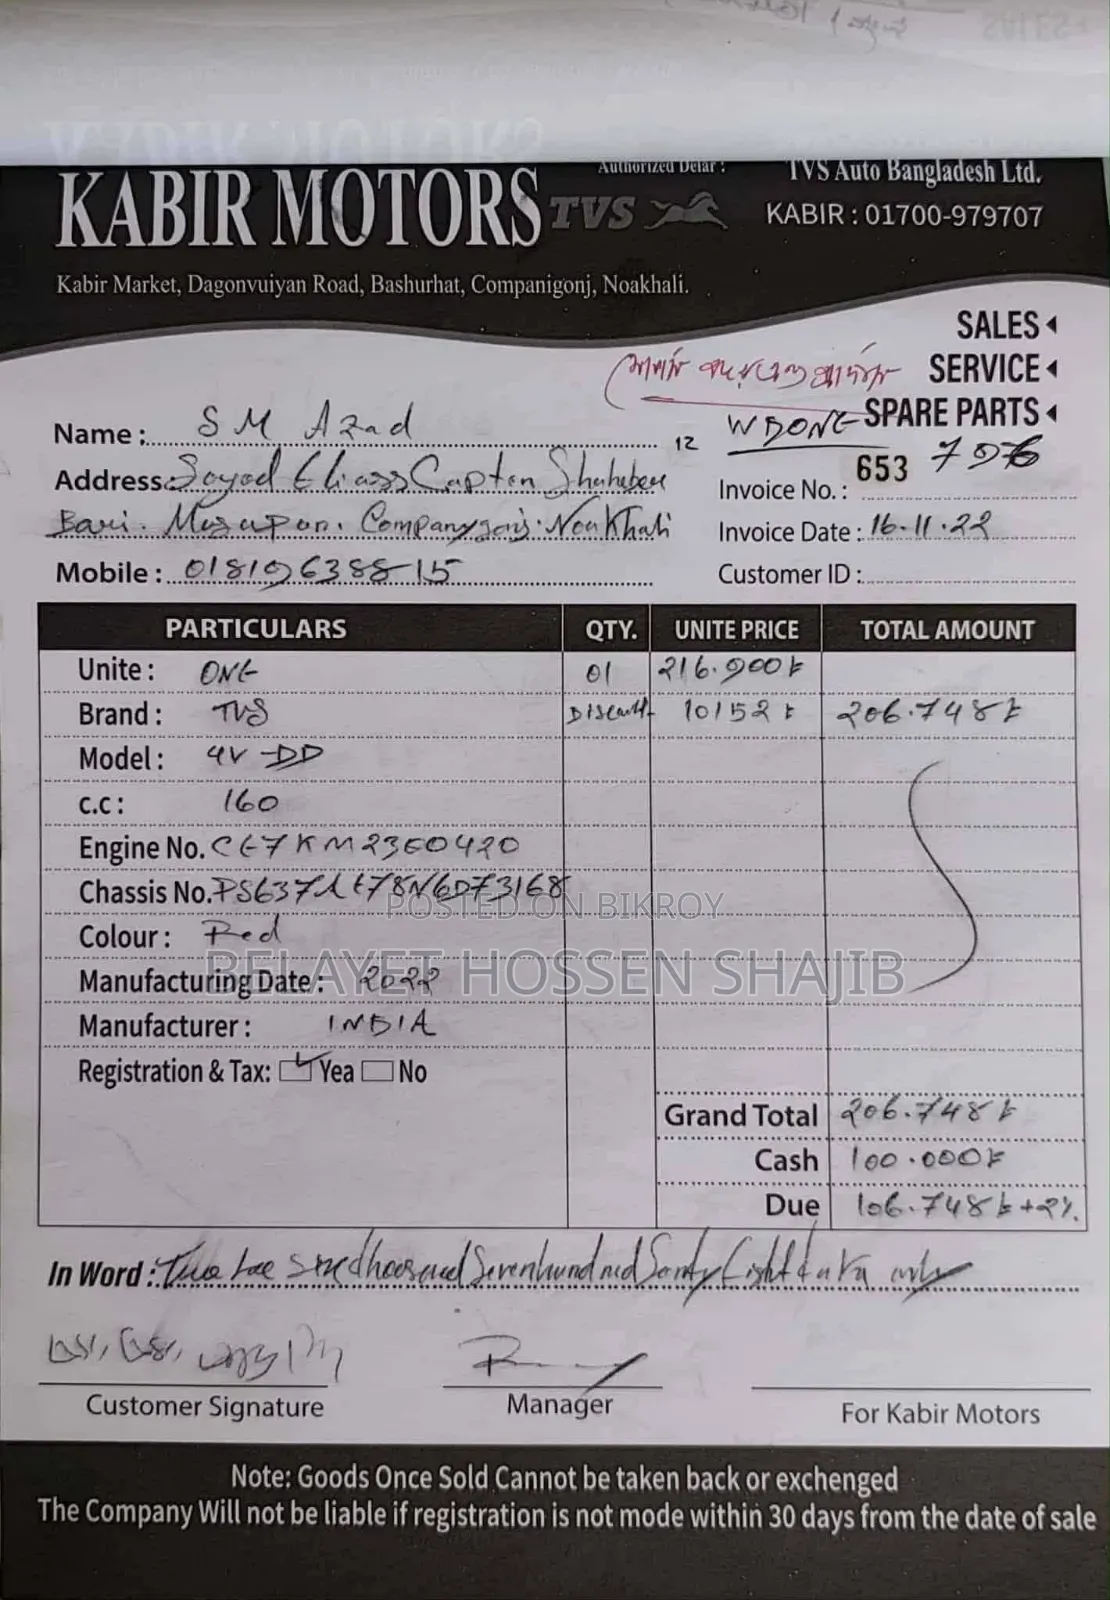 KABIR MOTORS
Authorized Delar :
TVS
TVS Auto Bangladesh Ltd.
KABIR : 01700-979707
Kabir Market, Dagonvuiyan Road, Bashurhat, Companigonj, Noakhali.
SALES
SERVICE
SPARE PARTS
Name : S M Azad
12
Address: Sayed Eliass Capten Shaheber
Bari. Musapur. Companygonj. Noakhali
Mobile : 01819638815
653
Invoice No. :
Invoice Date : 16-11-22
Customer ID :
PARTICULARS QTY. UNITE PRICE TOTAL AMOUNT
Unite : ONE 01 216.900৳
Brand : TVS Discount 10152৳ 206.748৳
Model : 4V DD
c.c : 160
Engine No. CE7KM23E0420
Chassis No.
Colour : Red
Manufacturing Date : 2022
Manufacturer : INDIA
Registration & Tax: Yea No
Grand Total 206.748৳
Cash 100.000৳
Due 106.748৳+2%.
In Word :
Customer Signature
Manager
For Kabir Motors
Note: Goods Once Sold Cannot be taken back or exchenged
The Company Will not be liable if registration is not mode within 30 days from the date of sale
POSTED ON BIKROY
BELAYET HOSSEN SHAJIB